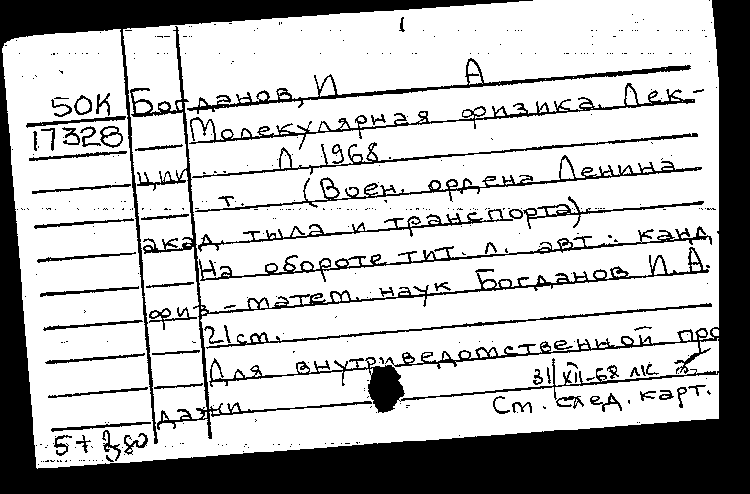 1
50К Богданов, И А
17328 Молекулярная физика. Лек-
ции ... Л., 1968.
т. (Воен. ордена Ленина
акад. тыла и транспорта).
На обороте тит. л. авт.: канд.
физ-матем. наук Богданов И. А.
21см.
Для внутриведомственной про
дажи.
31/XII-68 лк
Ст. след. карт.
5+